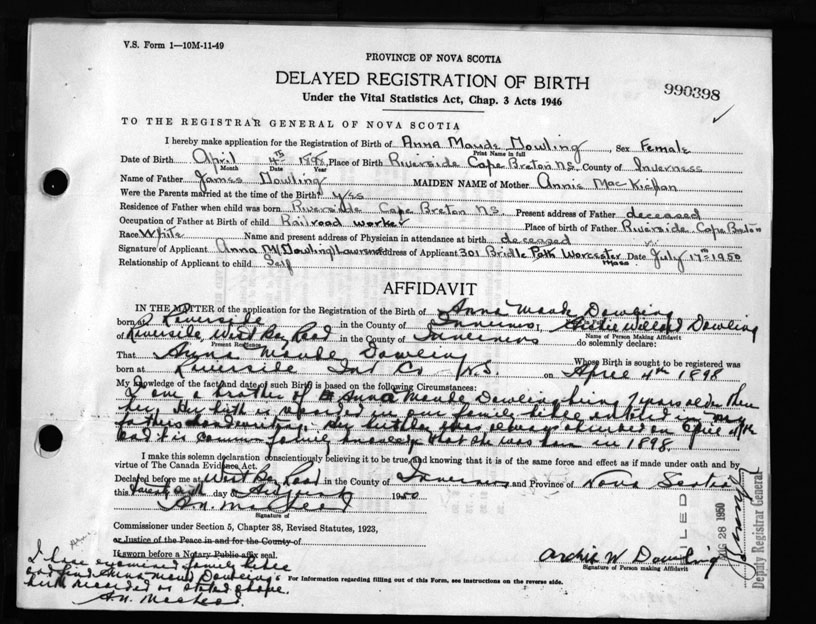 V.S. Form 1—10M-11-49
PROVINCE OF NOVA SCOTIA
DELAYED REGISTRATION OF BIRTH
990398
Under the Vital Statistics Act, Chap. 3 Acts 1946
TO THE REGISTRAR GENERAL OF NOVA SCOTIA
I hereby make application for the Registration of Birth of Anna Maude Dowling, Sex Female
Print Name in full
Date of Birth April 4th 1898, Place of Birth Riverside Cape Breton N.S., County of Inverness
Month Date Year
Name of Father James Dowling MAIDEN NAME of Mother Annie Mac
Were the Parents married at the time of the Birth? yes
Residence of Father when child was born Riverside Cape Breton N.S. Present address of Father deceased
Occupation of Father at Birth of child Railroad worker Place of birth of Father Riverside Cape Breton
Race White Name and present address of Physician in attendance at birth deceased
Signature of Applicant Anna M (Dowling) Address of Applicant 301 Bridle Path Worcester Mass. Date July 17th 1950
Relationship of Applicant to child Self
AFFIDAVIT
IN THE MATTER of the application for the Registration of Birth of Anna Maude Dowling
born at Riverside in the County of Inverness I, Archie Willard Dowling
Name of Person Making Affidavit
of Riverside, West Bay Road in the County of Inverness do solemnly declare:
Present Residence
That Anna Maude Dowling Whose Birth is sought to be registered was
born at Riverside Int Co N.S. on April 4th 1898
My knowledge of the fact and date of such Birth is based on the following Circumstances:
I am a brother of Anna Maude Dowling being 7 years older than
her. Her birth is recorded in our family bible entered in my
fathers handwriting. Her birthday was always observed on April 4th
and it is common family knowledge that she was born in 1898.
I make this solemn declaration conscientiously believing it to be true, and knowing that it is of the same force and effect as if made under oath and by
virtue of The Canada Evidence Act.
Declared before me at West Bay Road in the County of Inverness and Province of Nova Scotia
this day of August 1950
A.N. MacLeod
Signature of
Commissioner under Section 5, Chapter 38, Revised Statutes, 1923,
or Justice of the Peace in and for the County of
If sworn before a Notary Public affix seal.
Archie W Dowling
Signature of Person making Affidavit
I have examined family bible
and find Anna Maud Dowling's
birth recorded as stated above.
A.N. MacLeod.
For Information regarding filling out of this Form, see instructions on the reverse side.
FILED
AUG 28 1950
Deputy Registrar General